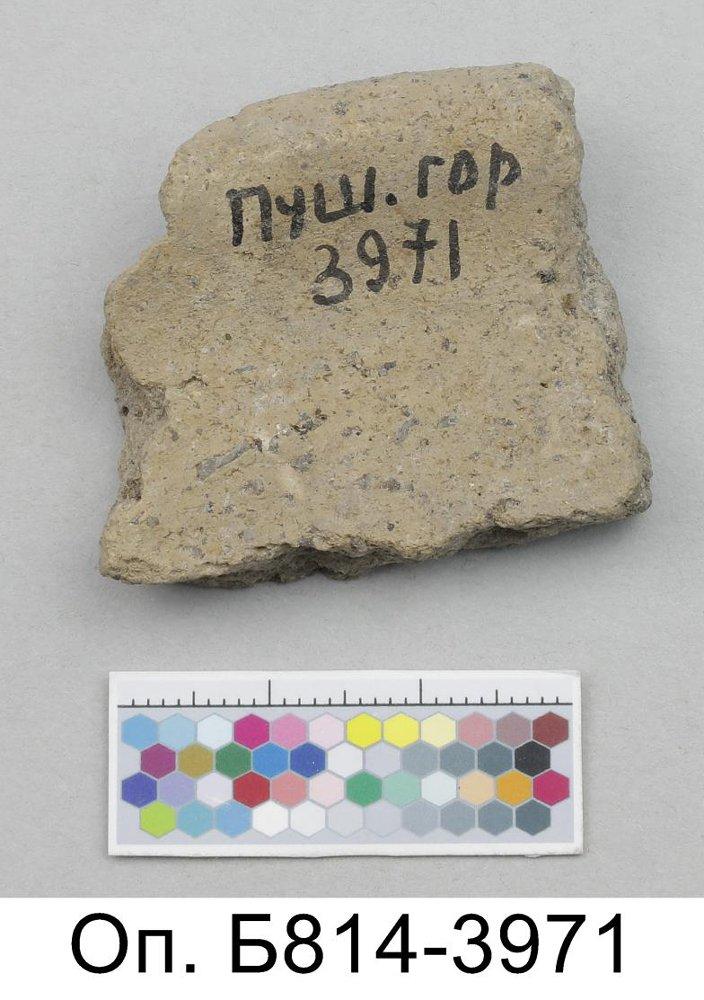 Пуш. гор
3971
Оп. Б814-3971